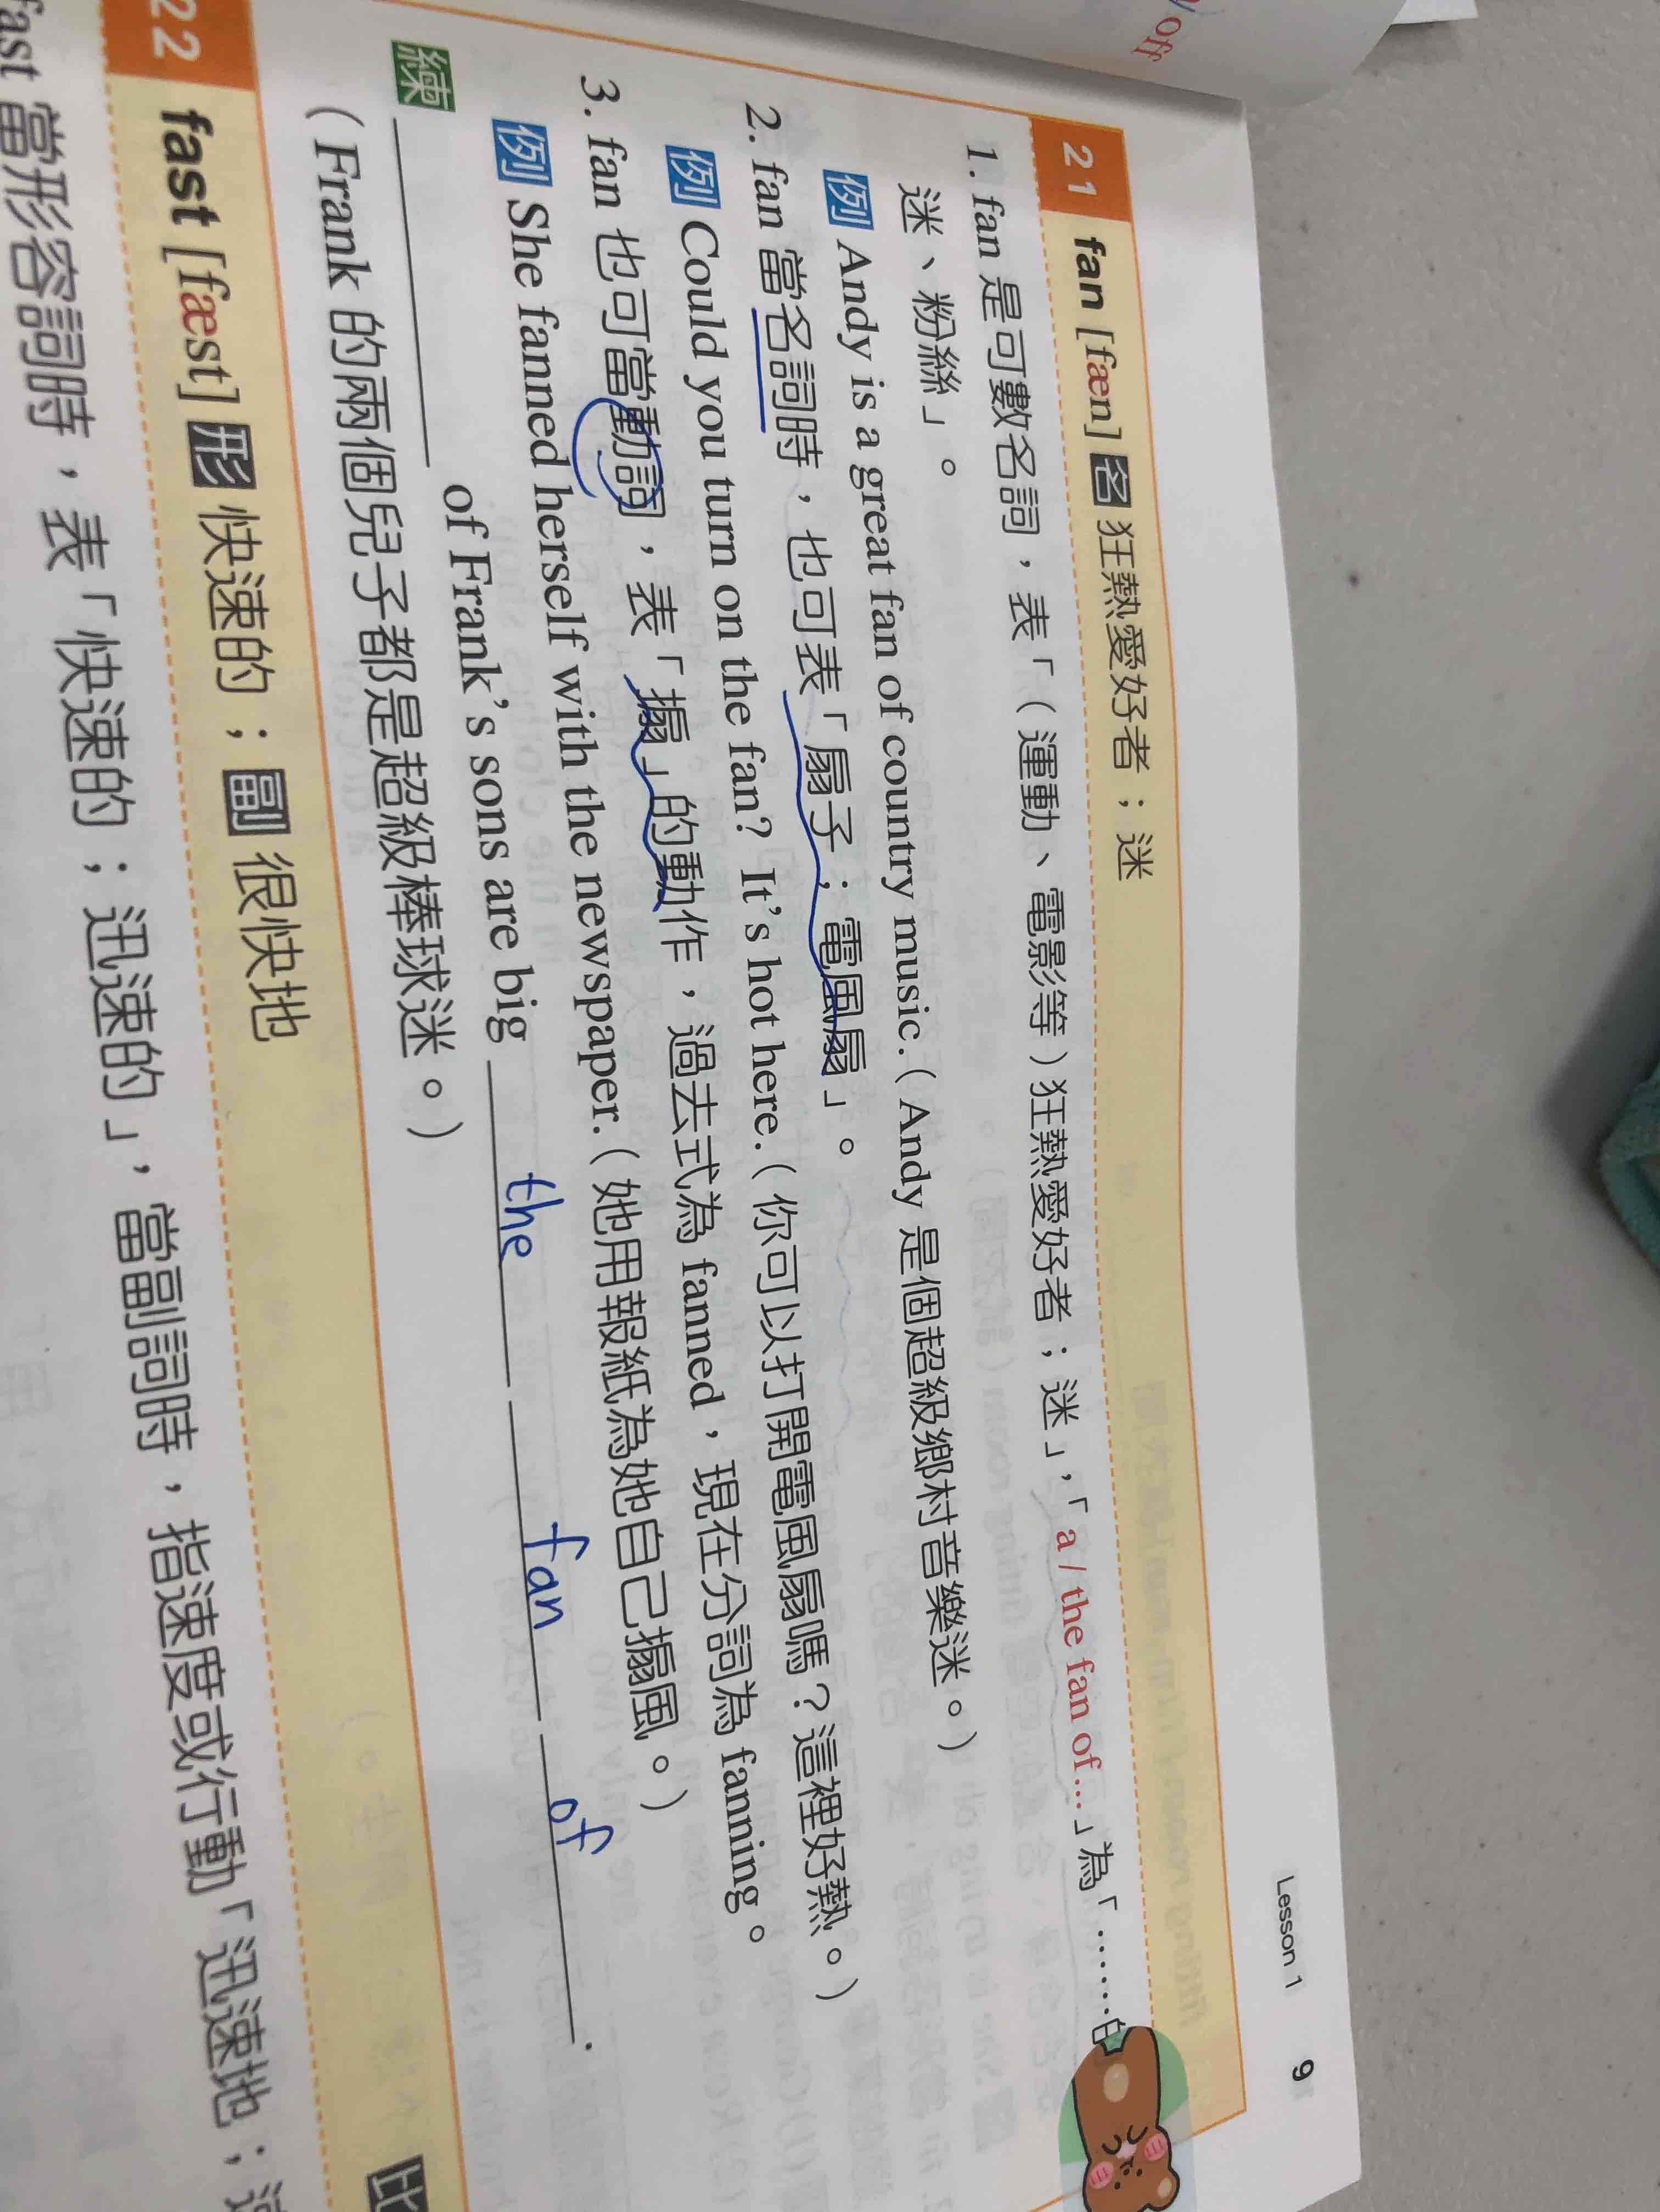 off
Lesson 1 9
21 fan [fæn] 名 狂熱愛好者；迷
1. fan 是可數名詞，表「（運動、電影等）狂熱愛好者；迷」，「a / the fan of...」為「……的
迷、粉絲」。
例 Andy is a great fan of country music.（Andy 是個超級鄉村音樂迷。）
2. fan 當名詞時，也可表「扇子；電風扇」。
例 Could you turn on the fan? It's hot here.（你可以打開電風扇嗎？這裡好熱。）
3. fan 也可當動詞，表「搧」的動作，過去式為 fanned，現在分詞為 fanning。
例 She fanned herself with the newspaper.（她用報紙為她自己搧風。）
練 ________ of Frank's sons are big the fan of.
（Frank 的兩個兒子都是超級棒球迷。）
22 fast [fæst] 形 快速的；副 很快地 比
fast 當形容詞時，表「快速的；迅速的」，當副詞時，指速度或行動「迅速地；